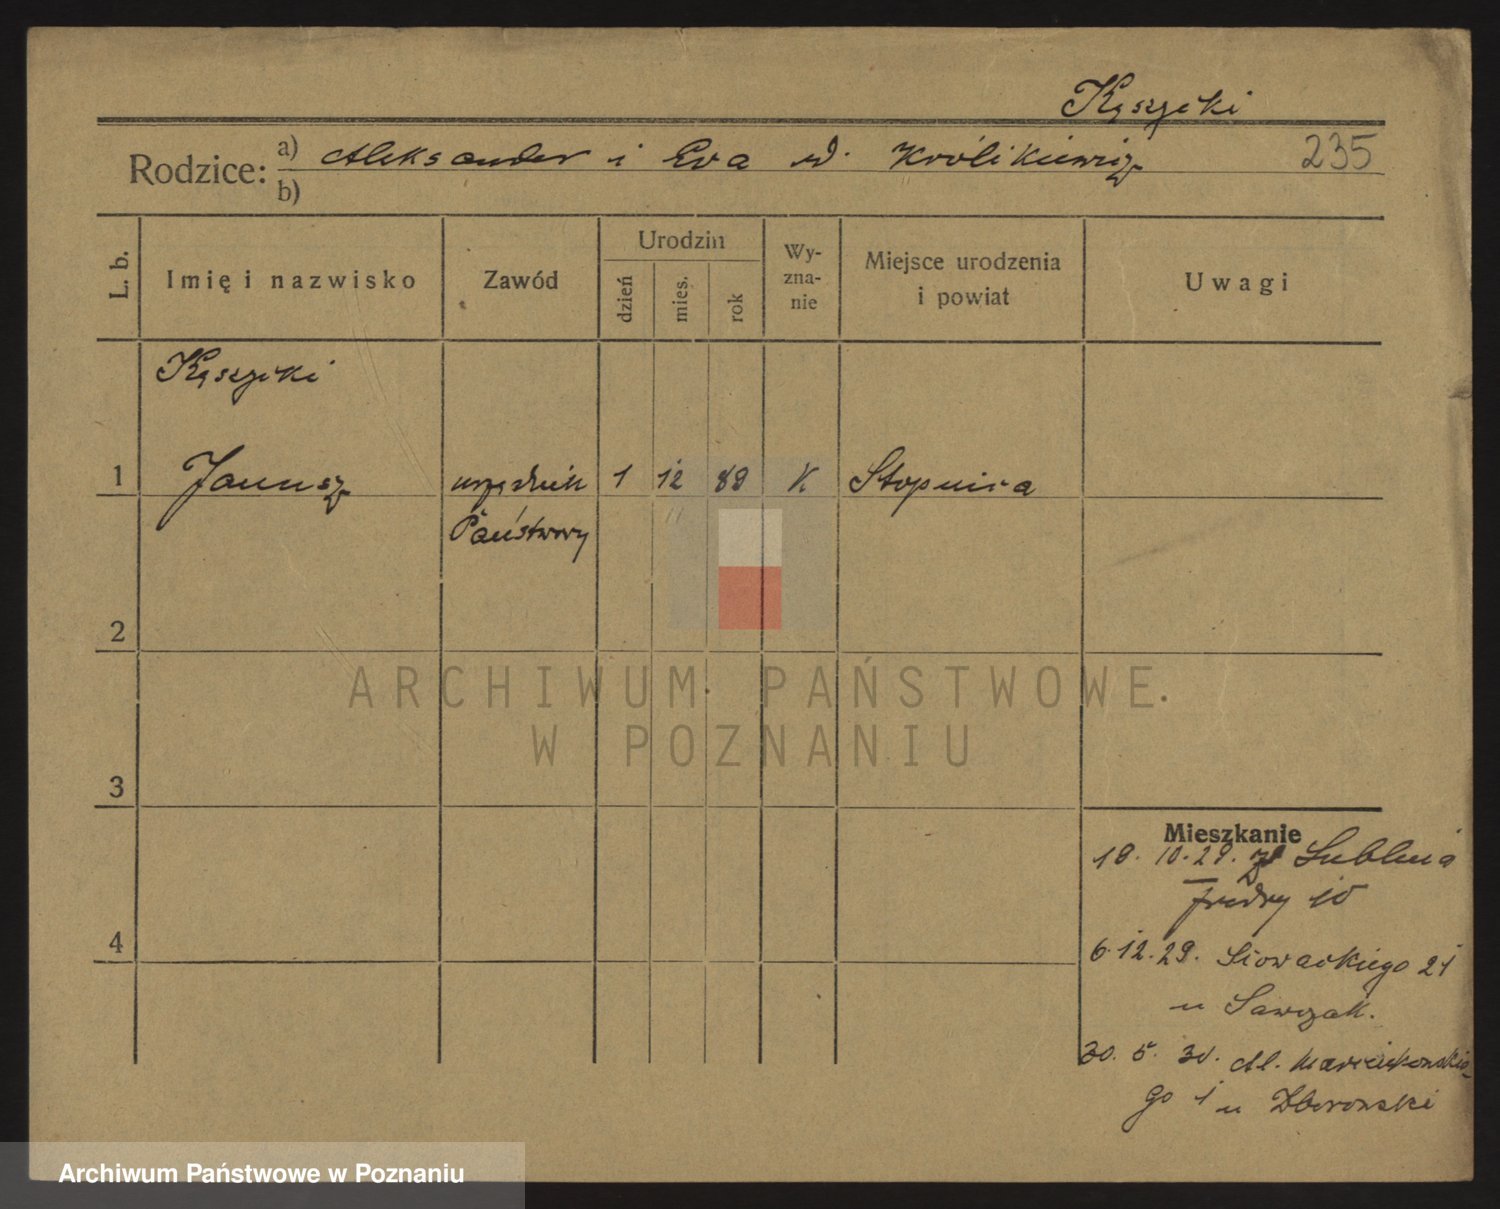 Kęszycki
Rodzice: a) Aleksander i Ewa d. Królikiewicz 235
b)
L. b. Imię i nazwisko Zawód Urodzin dzień mies. rok Wyznanie Miejsce urodzenia i powiat Uwagi
Kęszycki
1 Janusz urzędnik 1 12 89 K Stopnica
Państwowy
2
ARCHIWUM PAŃSTWOWE
W POZNANIU
3
Mieszkanie
18. 10. 29. z Lublina
Fredry 10
4
6. 12. 29. Słowackiego 21
u Sawczak.
30. 5. 30. Al. Marcinkowskie-
go 1 u Zborowski
Archiwum Państwowe w Poznaniu